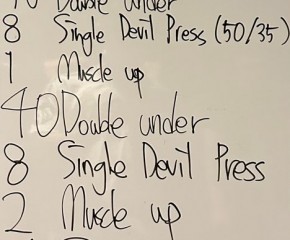 Double under
8 Single Devil Press (50/35)
1 Muscle up
40 Double under
8 Single Devil Press
2 Muscle up